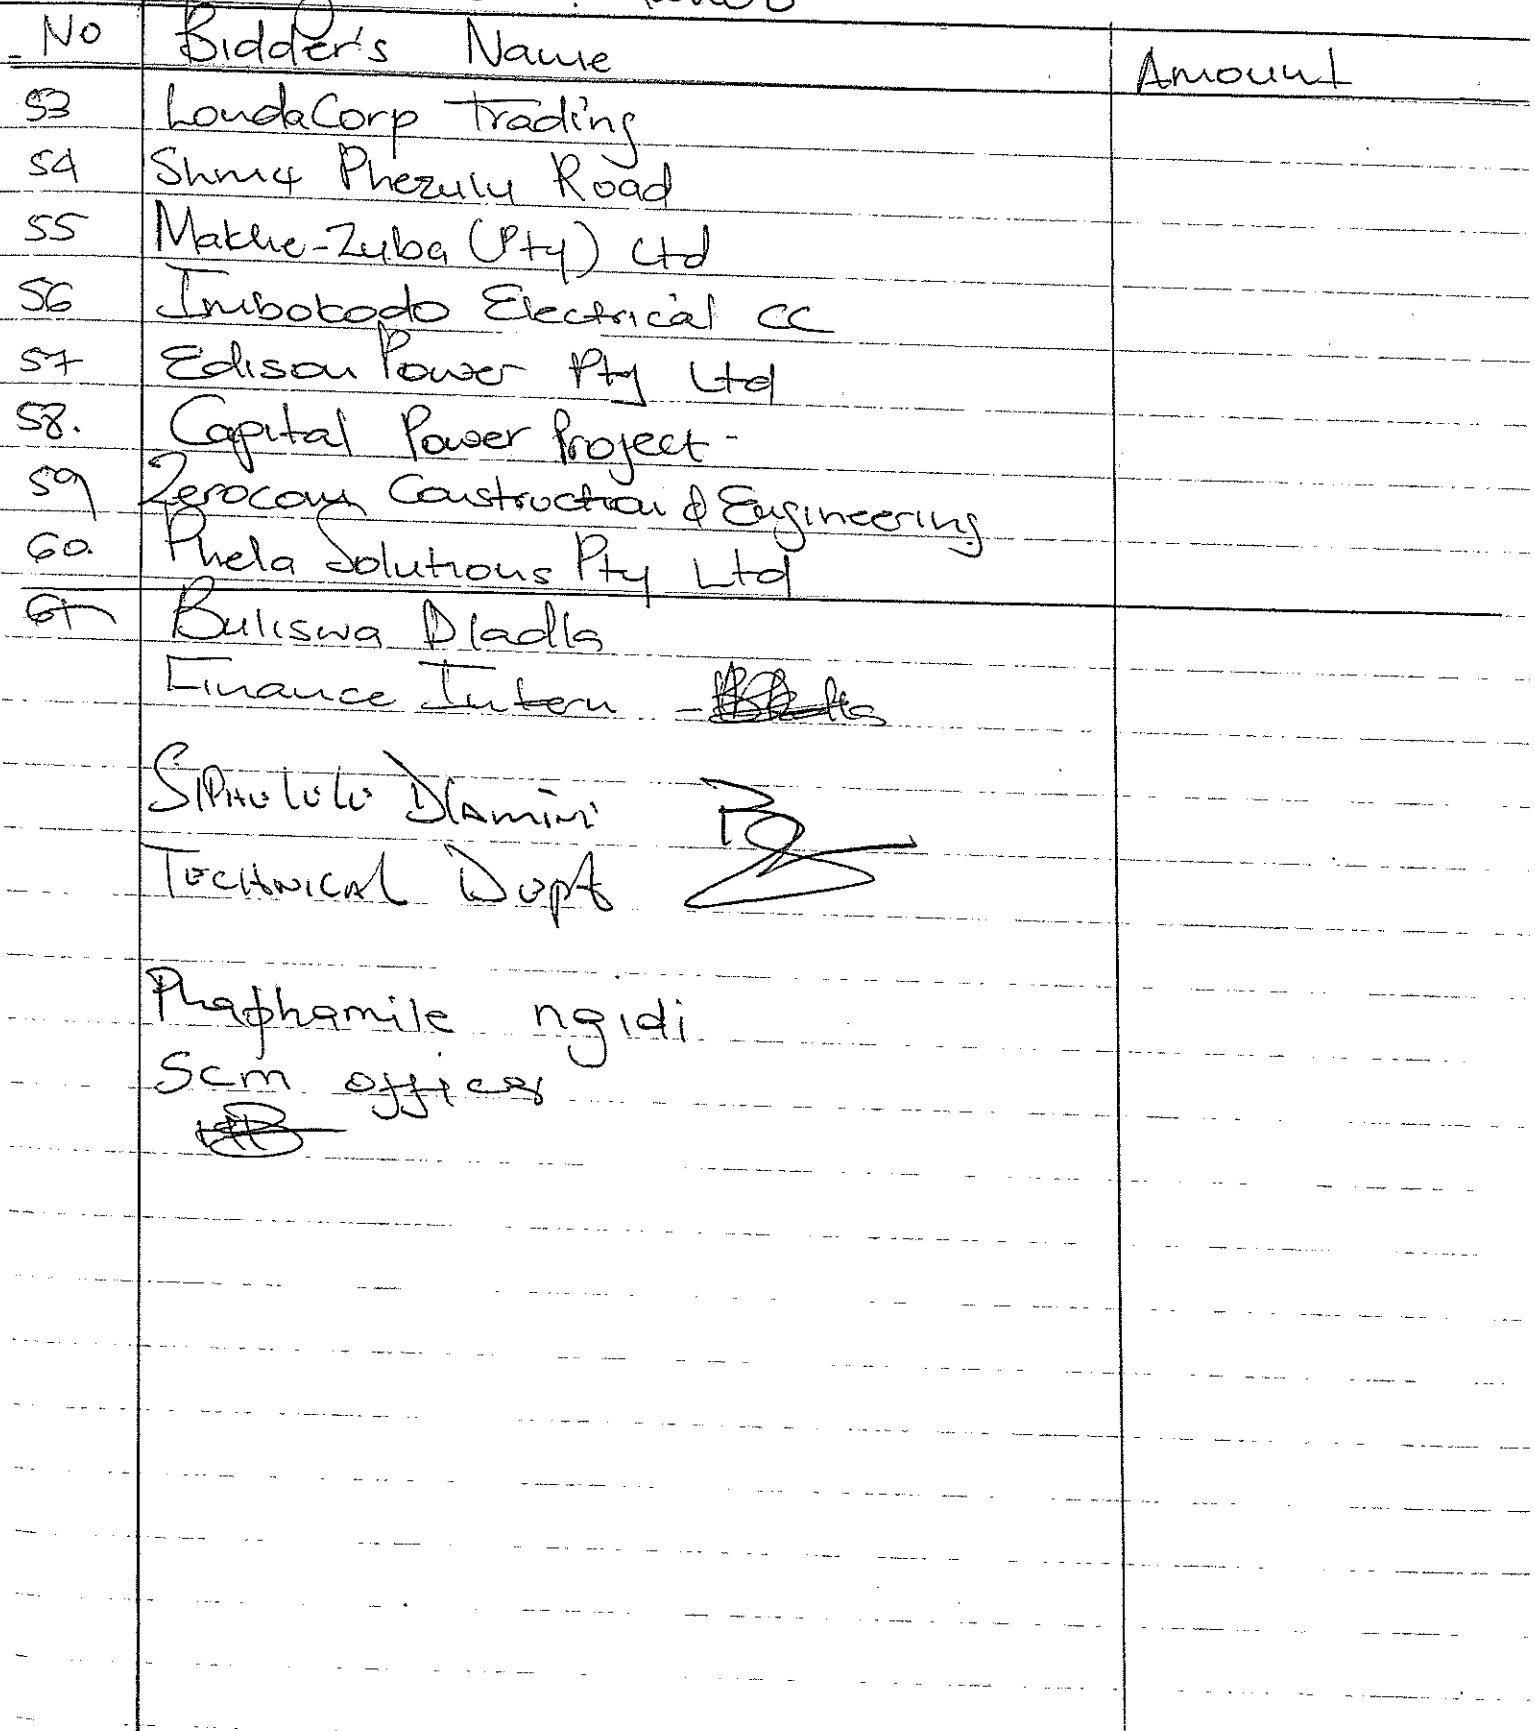 No Bidder's Name Amount
53 LondaCorp Trading
54 Shm4 Phezulu Road
55 Makhe-Zuba (Pty) Ltd
56 Imbokodo Electrical CC
57 Edison Power Pty Ltd
58. Capital Power Project -
59 Zerocom Construction & Engineering
60. Phela Solutions Pty Ltd
61 Buliswa Dladla
Finance Intern -
Siphulule Dlamini
Technical Dept
Phaphamile ngidi
Scm officer